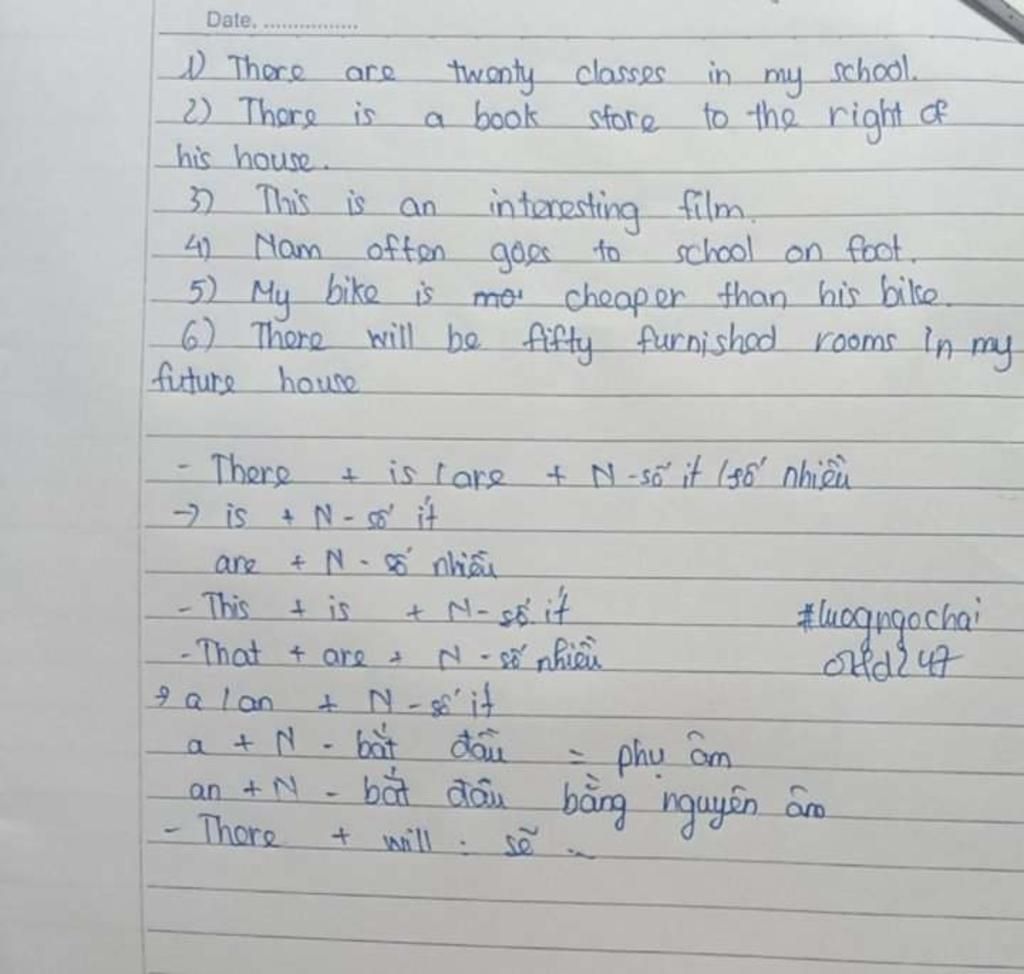 Date. ................
1) There are twenty classes in my school.
2) There is a book store to the right of
his house.
3) This is an interesting film.
4) Nam often goes to school on foot.
5) My bike is mo cheaper than his bike.
6) There will be fifty furnished rooms in my
future house
- There + is / are + N - số ít / số nhiều
→ is + N - số ít
are + N - số nhiều
- This + is + N - số ít
#luogngochai
- That + are + N - số nhiều
→ a / an + N - số ít
a + N - bắt đầu = phụ âm
an + N - bắt đầu bằng nguyên âm
- There + will : sẽ ...